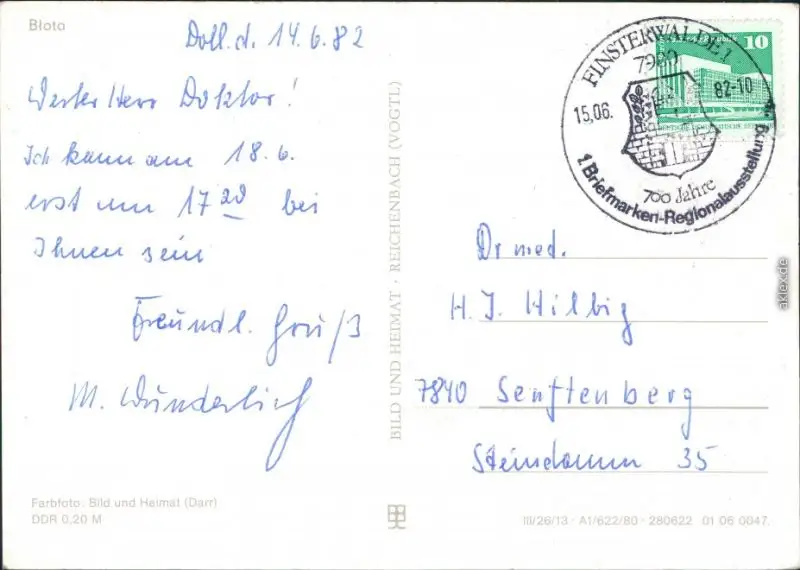 Błota
Doll.d. 14.6.82
Werter Herr Doktor!
Ich kann am 18.6.
erst um 17 20 bei
Ihnen sein
Freundl. Gruß
M. Wunderlich
Farbfoto: Bild und Heimat (Darr)
DDR 0,20 M
BILD UND HEIMAT · REICHENBACH (VOGTL)
FINSTERWALDE 1
7980
15.06.
82-10
700 Jahre
1. Briefmarken-Regionalausstellung
10
Dr med.
H. J. Hilbig
7840 Senftenberg
Steindamm 35
III/26/13 · A1/622/80 · 280622 01 06 0047
aklex.de